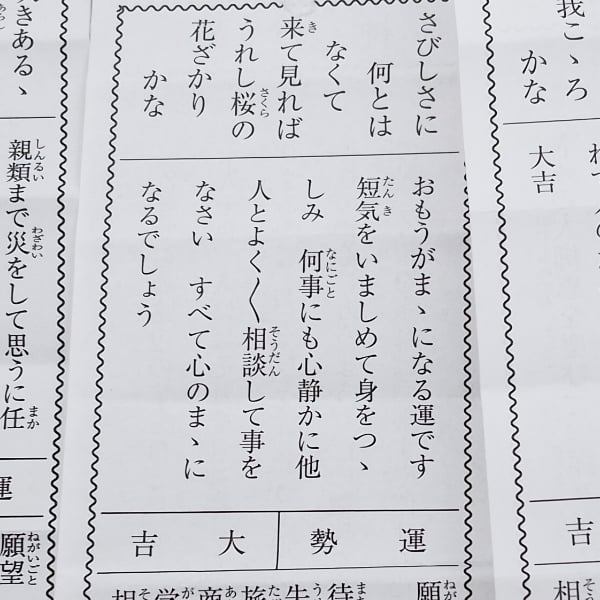 我こゝろ
かな
大吉
吉
さびしさに
何とは
なくて
来て見れば
うれし桜の
花ざかり
かな
おもうがまゝになる運です
短気をいましめて身をつゝ
しみ 何事にも心静かに他
人とよく〱相談して事を
なさい すべて心のまゝに
なるでしょう
運勢 大吉
願
待
旅
商
学
相
きある、
親類まで災をして思うに任
運
願望